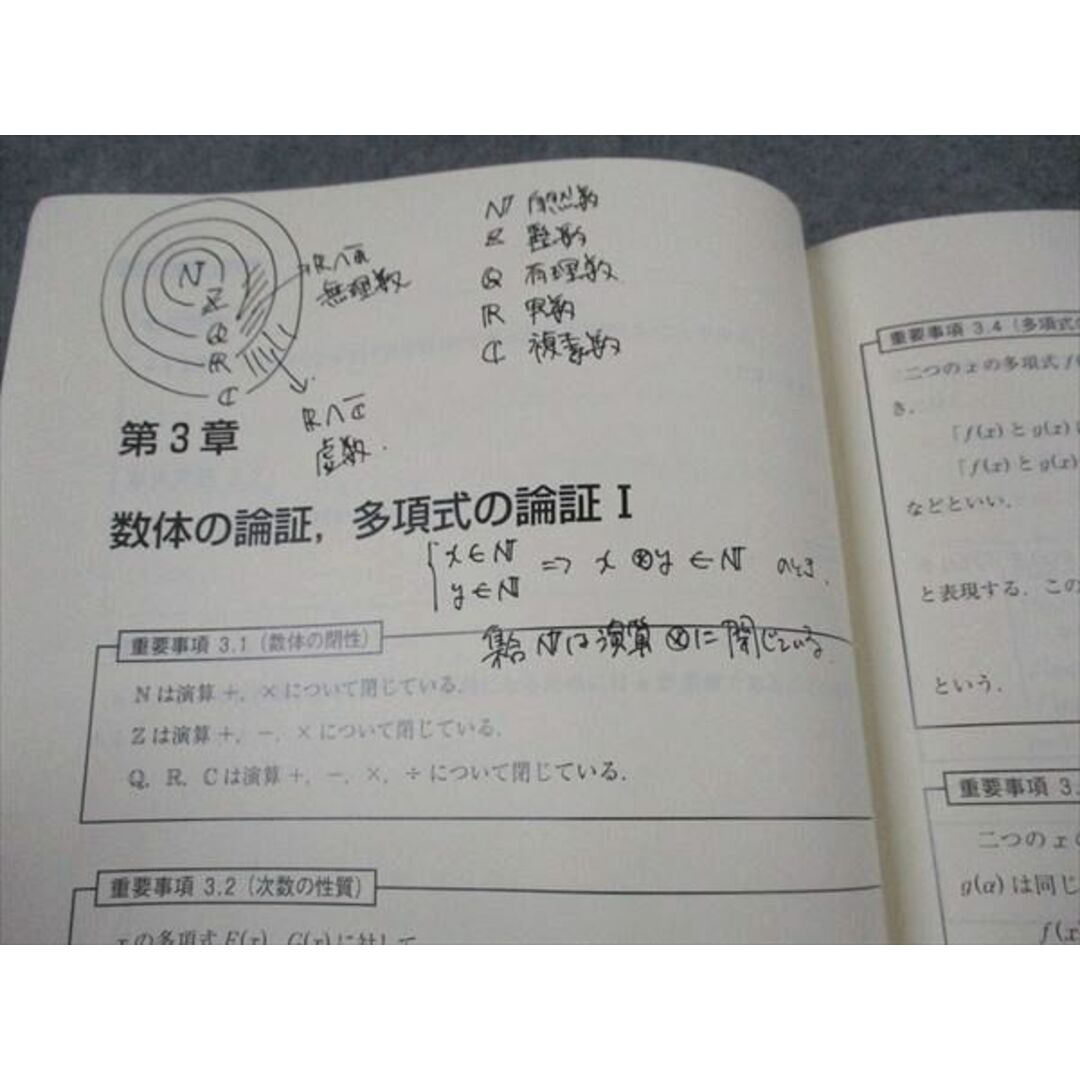 N
Z
Q
R
C
R∧Q̅
無理数
R∧C̅
虚数.
N 自然数
Z 整数
Q 有理数
R 実数
C 複素数
第3章
数体の論証，多項式の論証 I
x∈N
y∈N
⇒ x⊗y∈N のとき.
集合Nは演算⊗に閉じている.
重要事項 3.1（数体の閉性）
Nは演算＋，×について閉じている．
Zは演算＋，－，×について閉じている．
Q，R，Cは演算＋，－，×，÷について閉じている．
重要事項 3.2（次数の性質）
xの多項式F(x)，G(x)に対して
重要事項 3.4（多項式の
二つのxの多項式f(
き，
「f(x)とg(x)
「f(x)とg(x)
などといい，
と表現する．この
という．
重要事項 3.
二つのxの
g(α)は同じ
f(x